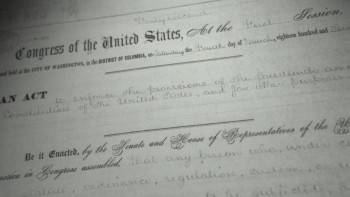 Forty-second
Congress of the United States, At the First Session,
and held at the CITY OF WASHINGTON, in the DISTRICT OF COLUMBIA, on Saturday the fourth day of March, eighteen hundred and
AN ACT to enforce the provisions of the fourteenth
Constitution of the United States, and for other purposes
Be it Enacted, by the Senate and House of Representatives of the
in Congress assembled, That any person who, under
ordinance, regulation, custom, or
to be subjected,